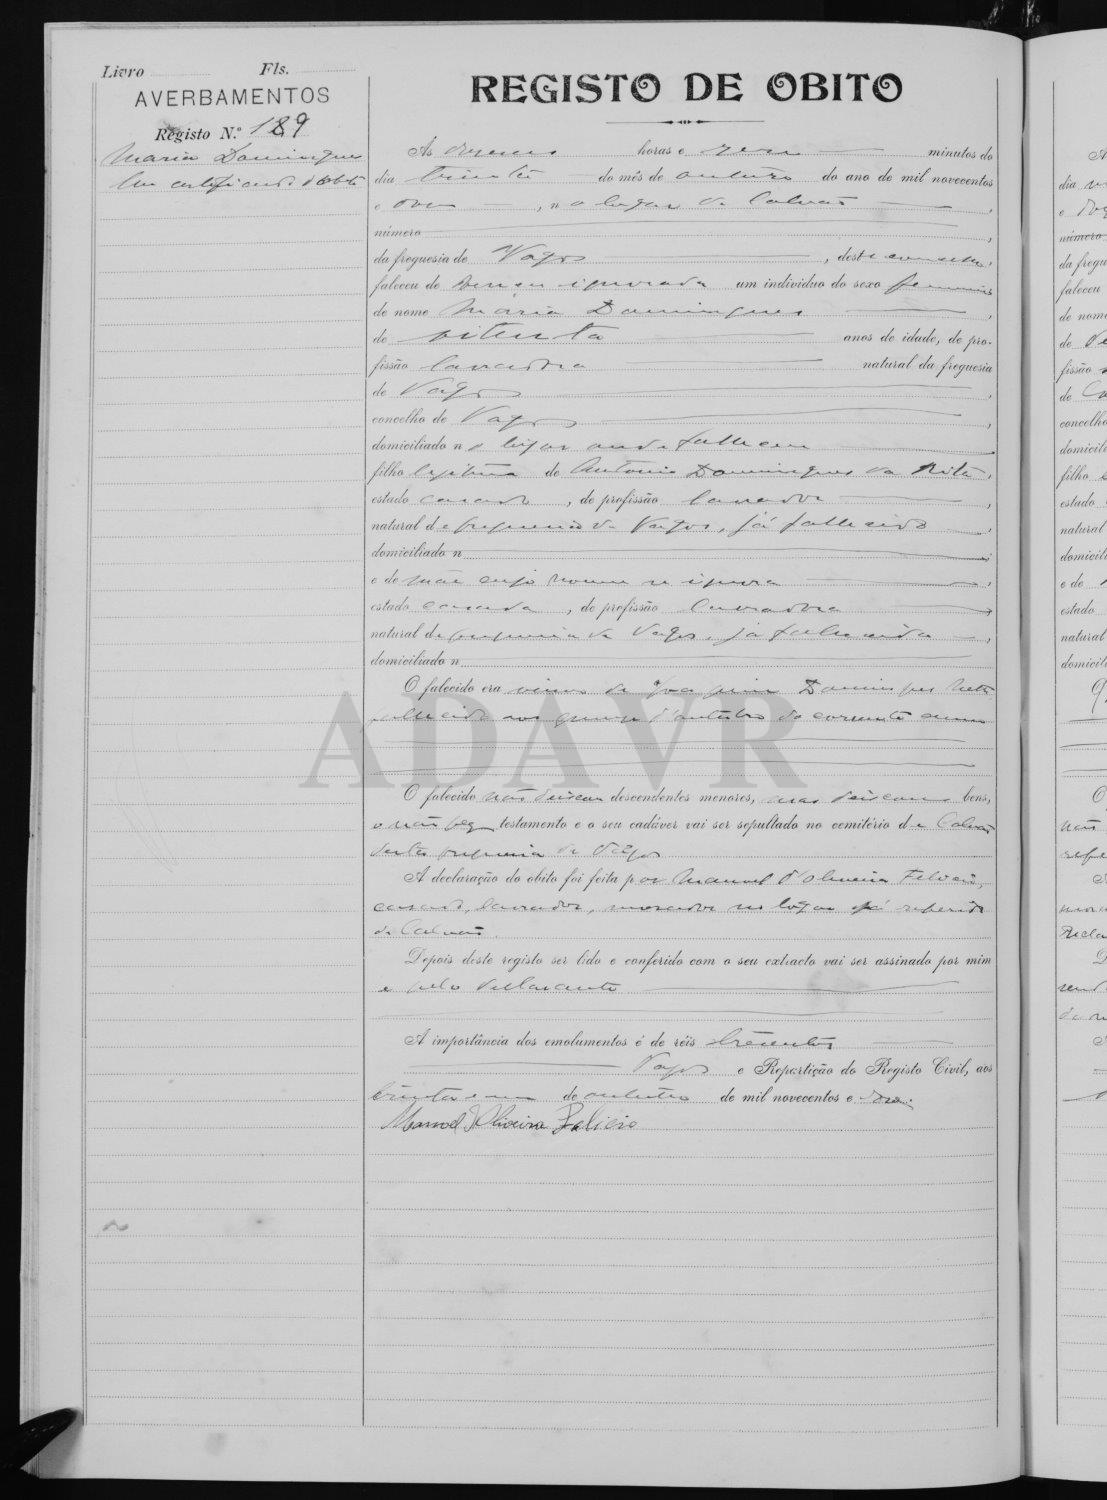 Livro Fls.
AVERBAMENTOS
Registo N.º 189
Maria Domingues
Um certificado d'obito
REGISTO DE OBITO
Ás horas e zero minutos do
dia trinta do mês de outubro do ano de mil novecentos
e onze, no lugar de Calvão,
número
da freguesia de Vagos, deste concelho,
faleceu de doença ignorada um individuo do sexo feminino
de nome Maria Domingues,
de setenta anos de idade, de pro-
fissão lavradora natural da freguesia
de Vagos,
concelho de Vagos,
domiciliado no lugar onde falleceu
filho legitima de Antonio Domingues da Rita,
estado casado, de profissão lavrador,
natural da freguesia de Vagos, já fallecido,
domiciliado n
e de mãe cujo nome se ignora,
estado casada, de profissão lavradora,
natural da freguesia de Vagos, já fallecida,
domiciliado n
O falecido era viuva de Joaquim Domingues Neto
fallecido aos quinze d'outubro do corrente anno
ADAVR
O falecido não deixou descendentes menores, mas deixou bens,
e não fez testamento e o seu cadáver vai ser sepultado no cemitério de Calvão
desta freguesia de Vagos
A declaração do obito foi feita por Manuel d'Oliveira Felicio,
casado, lavrador, morador no lugar já referido
de Calvão.
Depois deste registo ser lido e conferido com o seu extracto vai ser assinado por mim
e pelo declarante
A importância dos emolumentos é de réis trezentos
Vagos e Repartição do Registo Civil, aos
trinta e um de outubro de mil novecentos e onze.
Manoel d'Oliveira Felicio